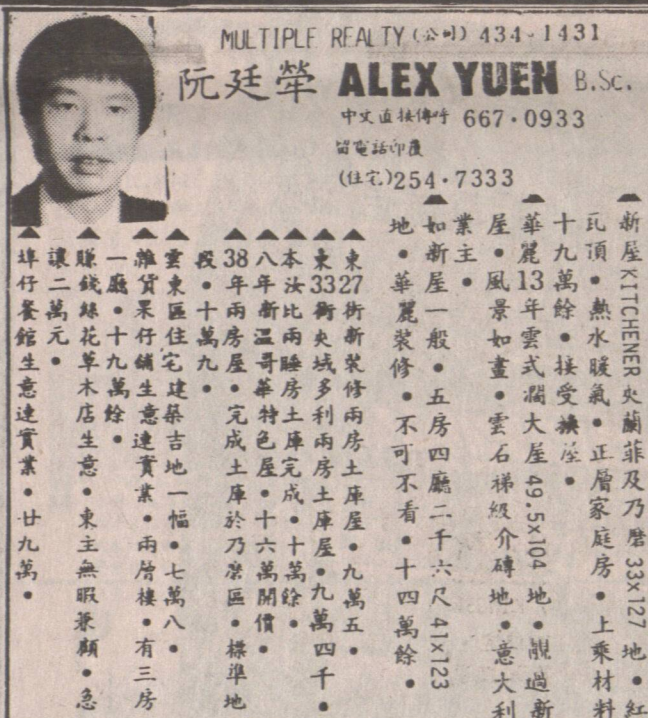 MULTIPLE REALTY (公司) 434-1431
阮廷犖 ALEX YUEN B.Sc.
中文直接傳呼 667·0933
留電話即覆
(住宅) 254·7333
▲新屋KITCHENER夾蘭菲及乃磨33x127地•紅
瓦頂•熱水暖氣•正層家庭房•上乘材料
十九萬餘•接受換
▲華麗13年雲式濶大屋49.5x104地•靚過新
屋•風景如畫•雲石梯級介磚地•意大利
業主•
▲如新屋一般•五房四廳二千六尺41x123
地•華麗裝修•不可不看•十四萬餘•
▲東27街新裝修兩房土庫屋•九萬五•
▲東33街夾域多利兩房土庫屋•九萬四千•
▲本汝比兩睡房土庫完成•十萬餘•
▲八年新温哥華特色屋•十六萬開價•
▲38年兩房屋•完成土庫於乃磨區•標準地
段•十萬九•
▲雲東區住宅建築吉地一幅•七萬八•
▲雜貨果仔鋪生意連實業•兩層樓•有三房
一廳•十九萬餘•
▲賺錢絲花草木店生意•東主無暇兼顧•急
讓二萬元•
▲埠仔餐館生意連實業•廿九萬•